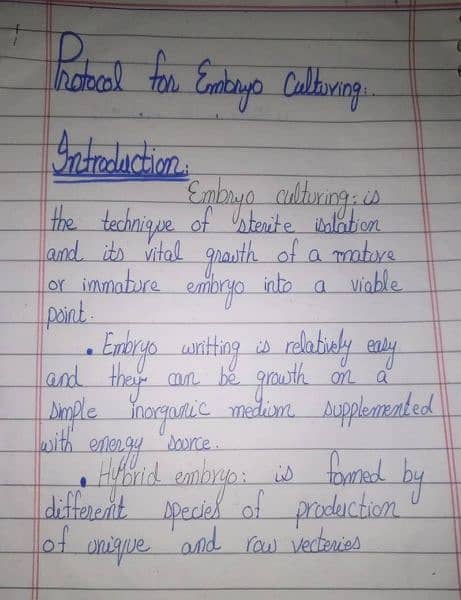 Protocal for Embryo Culturing:.
Introduction:
Embryo culturing: is
the technique of sterite isolation
and its vital growth of a mature
or immature embryo into a viable
point.
• Embryo writting is relatively easy
and they can be growth on a
simple inorganic medium supplemented
with energy source.
• Hybrid embryo: is fomed by
different species of production
of unique and row vecteries